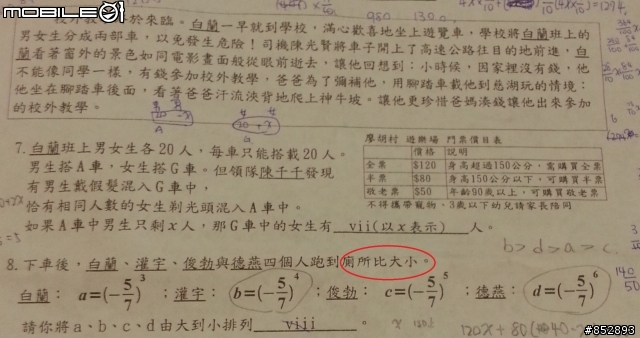 Mobile01
校外教學終於來臨。白蘭一早就到學校，滿心歡喜地坐上遊覽車，學校將白蘭班上的
男女生分成兩部車，以免發生危險！司機陳光賢將車子開上了高速公路往目的地前進，白
蘭看著窗外的景色如同電影畫面般從眼前逝去，讓他回想到：小時候，因家裡沒有錢，他
不能像同學一樣，有錢參加校外教學，爸爸為了彌補他，用腳踏車載他到慈湖玩的情境：
他坐在腳踏車後面，看著爸爸汗流浹背地爬上神牛坡。讓他更珍惜爸媽湊錢讓他出來參加
的校外教學。
7. 白蘭班上男女生各20人，每車只能搭載20人。
男生搭A車，女生搭G車。但領隊陳千千發現
有男生戴假髮混入G車中，
恰有相同人數的女生剃光頭混入A車中。
如果A車中男生只剩x人，那G車中的女生有 vii(以x表示) 人。
廖胡村 遊樂場 門票價目表
價格 說明
全票 $120 身高超過150公分，需購買全票
半票 $80 身高150公分以下，可購買半票
敬老票 $50 年齡90歲以上，可購買敬老票
不得攜帶寵物、3歲以下幼兒請家長陪同
b>d>a>c
8. 下車後，白蘭、灌宇、俊勃與德燕四個人跑到廁所比大小。
白蘭：a=(-5/7)³；灌宇：b=(-5/7)⁴；俊勃：c=(-5/7)⁵；德燕：d=(-5/7)⁶
請你將a、b、c、d由大到小排列 viii 。
#852893